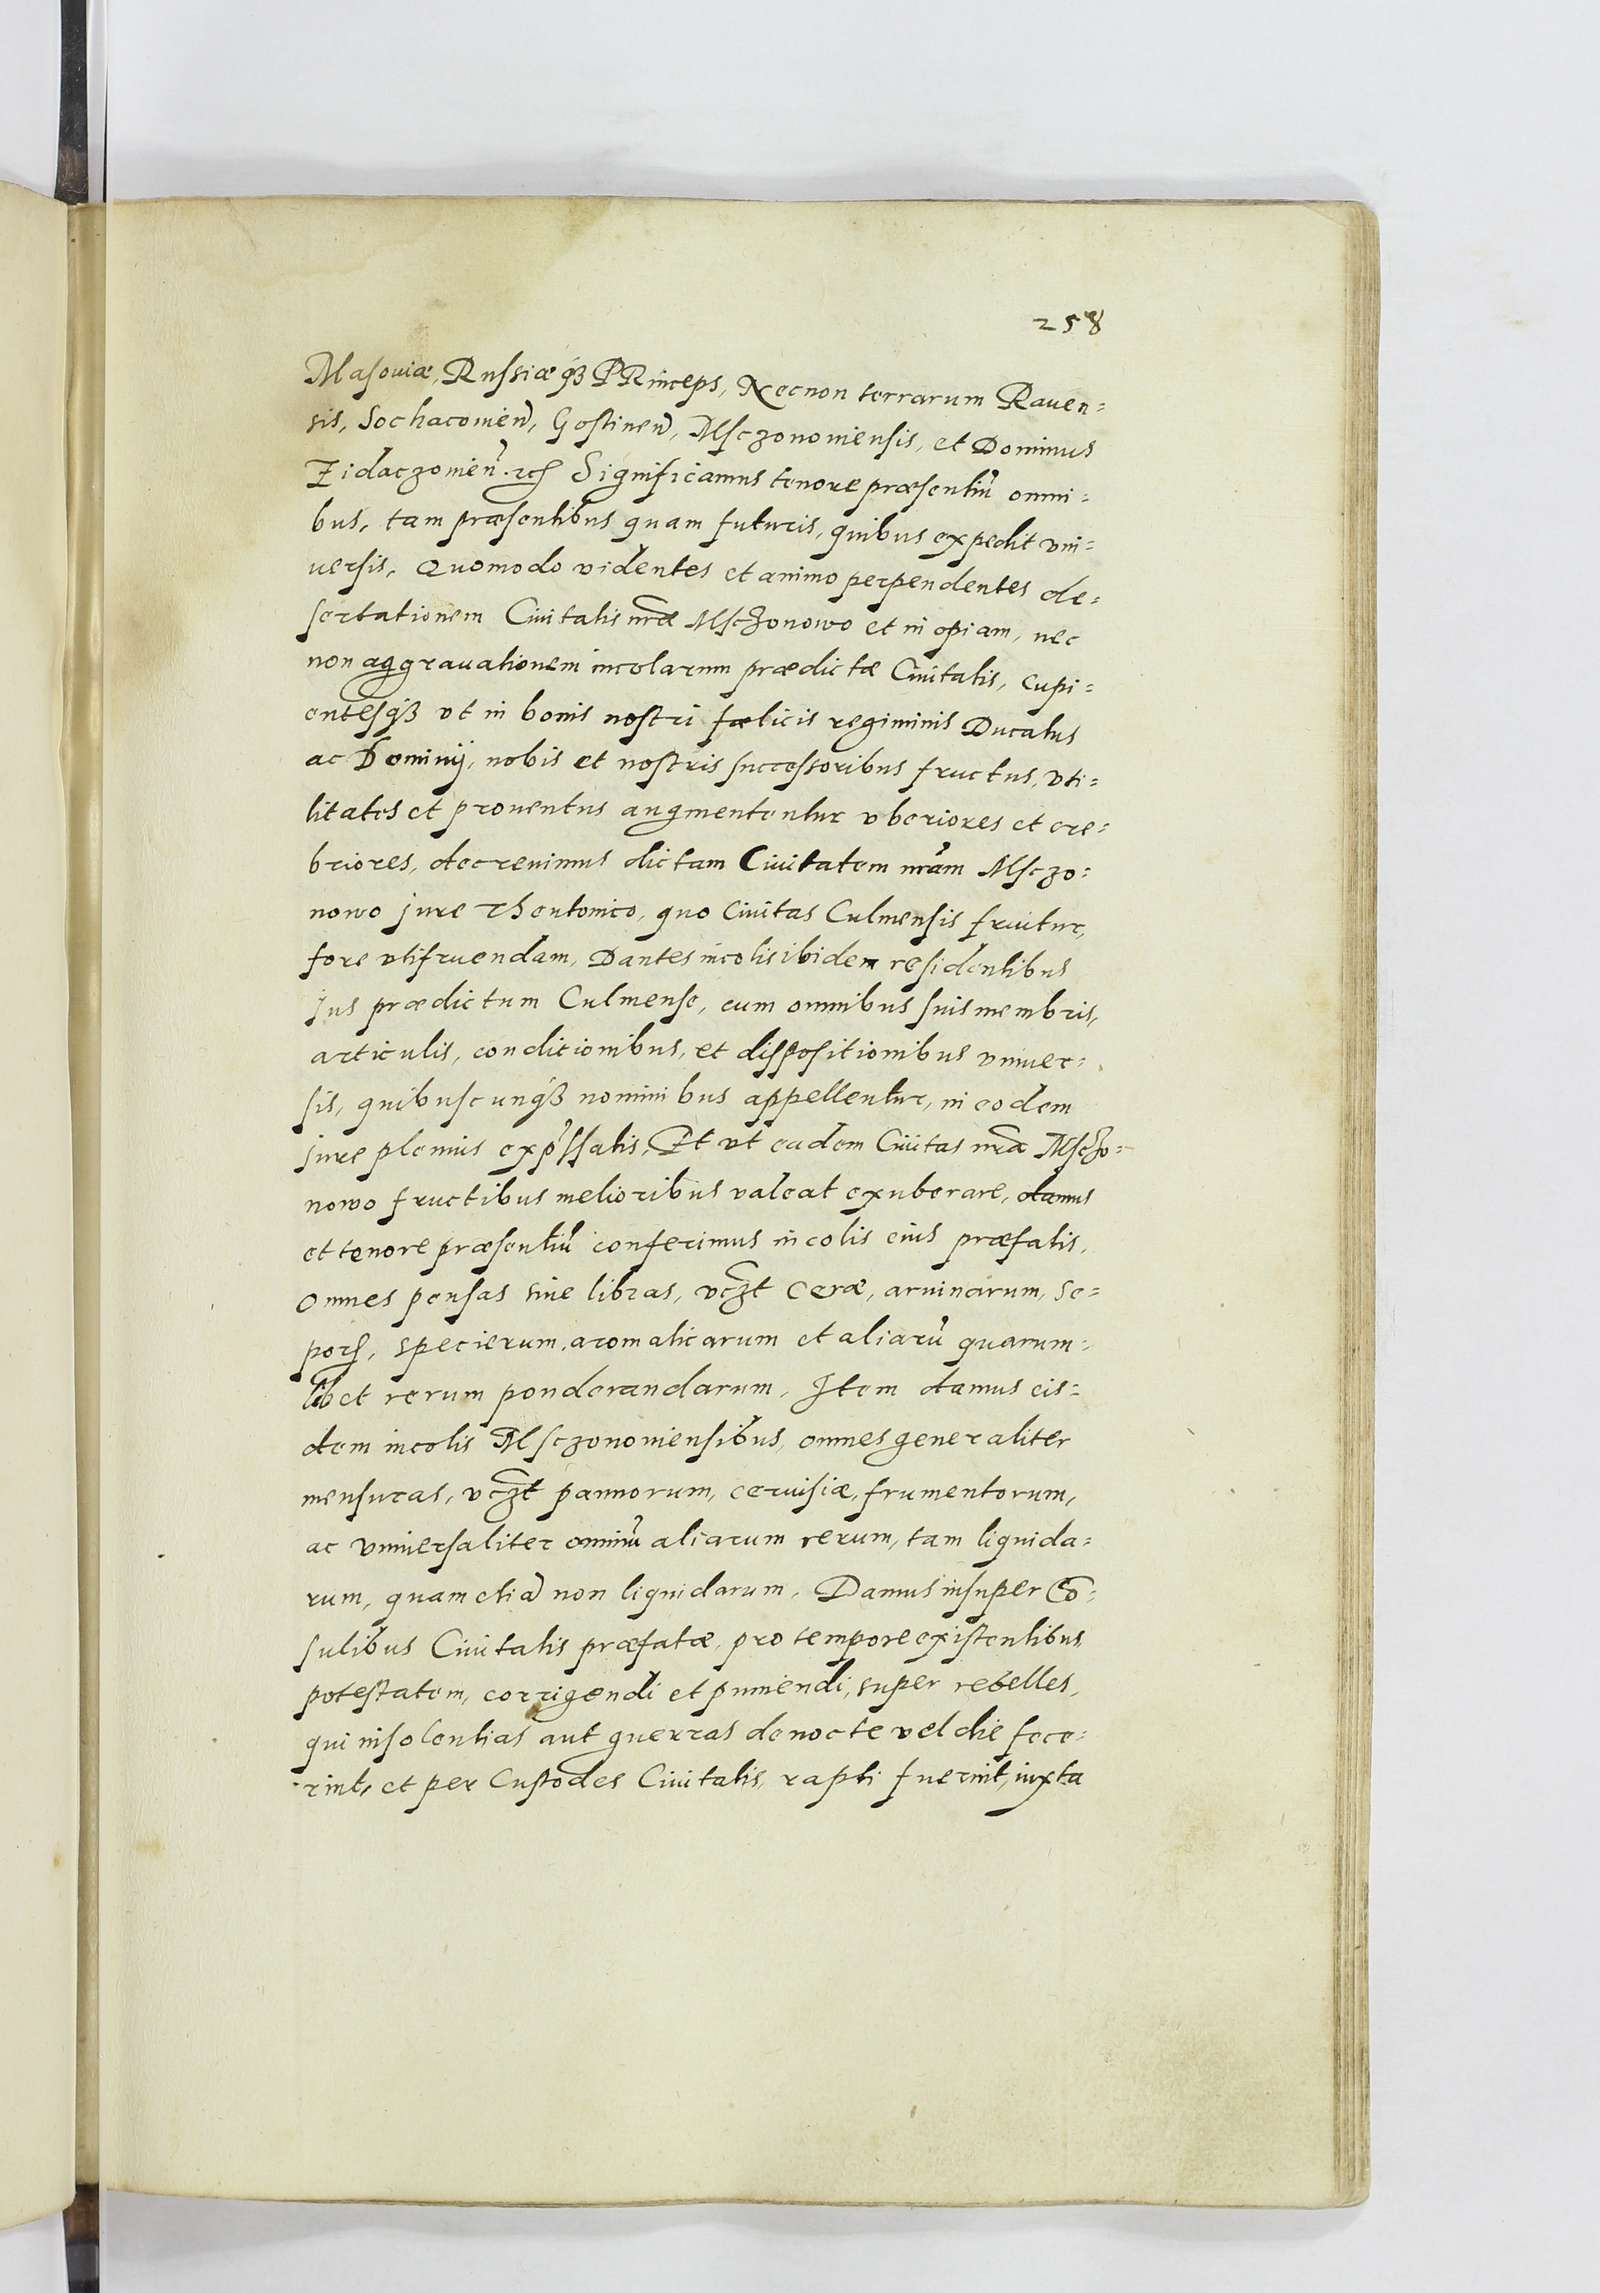 258
Masouiæ, Russiæq3 PRinceps, Necnon terrarum Rauen=
sis, Sochacouien̄, Gostinen̄, Msczonouiensis, et Dominus
Zidaczouien̄. etc Significamus tenore præsentiū omni=
bus, tam præsentibus quam futuris, quibus expedit vni=
uersis, Quomodo videntes et animo perpendentes de=
sertationem Ciuitatis nrãe Msczonowo et inopiam, nec
non aggrauationem incolarum prædictæ Ciuitatis, cupi=
entesq3 vt in bonis nostri fælicis regiminis Ducatus
ac Dominij, nobis et nostris successoribus fructus, vti=
litates et prouentus augmententur vberiores et cre=
briores, decreuimus dictam Ciuitatem nrãm Msczo=
nowo jure Theutonico, quo Ciuitas Culmensis fruitur,
fore vtifruendam, Dantes incolis ibidem residentibus
jus prædictum Culmense, cum omnibus suis membris,
articulis, conditionibus, et dispositionibus vniuer=
sis, quibuscunq3 nominibus appellentur, in eodem
jure plenius exp̃ssatis, Et vt eadem Ciuitas nrã Msczo=
nowo fructibus melioribus valeat exuberare, damus
et tenore præsentiū conferimus incolis eius præfatis,
omnes pensas siue libras, vc̃zt ceræ, aruinarum, se=
por̃, specierum aromaticarum et aliarū quarum=
libet rerum ponderandarum, Item damus eis=
dem incolis Msczonouiensibus, omnes generaliter
mensuras, vc̃zt pannorum, ceruisiæ, frumentorum,
ac vniuersaliter omniū aliarum rerum, tam liquida=
rum, quam etiā non liquidarum, Damus insuper Cõ=
sulibus Ciuitatis præfatæ, pro tempore existentibus
potestatem, corrigendi et puniendi, super rebelles,
qui insolentias aut guerras de nocte vel die fece=
rint, et per Custodes Ciuitatis, rapti fuerint, iuxta